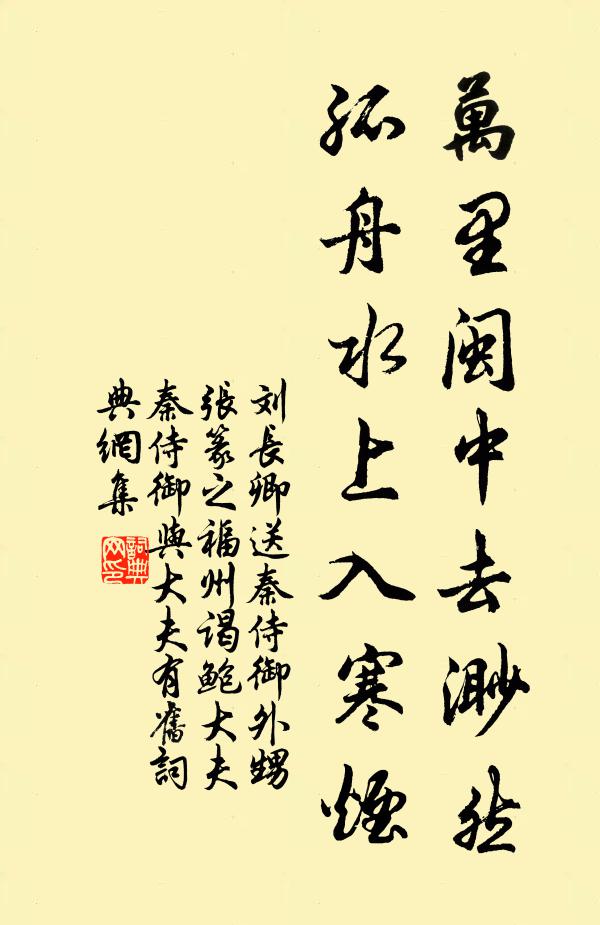 萬里閩中去渺然
孤舟水上入寒煙
刘長卿送秦侍御外甥
張篆之福州谒鲍大夫
秦侍御與大夫有舊詞
典網集
詞典
网印